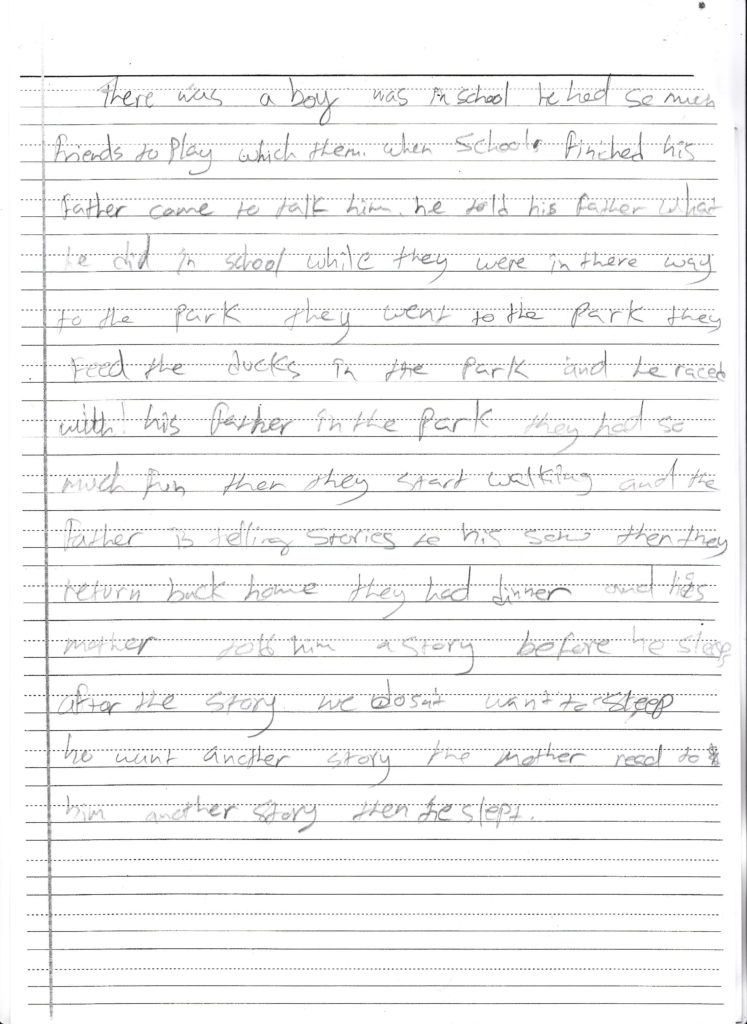 There was a boy was in school he had so much
friends to play which them. when school finiched his
father come to talk him. he told his father what
he did in school while they were in there way
to the park they went to the park they
feed the ducks in the park and he raced
with his father in the park they had so
much fun then they start walking and the
father is telling stories to his son then they
return back home they had dinner and his
mother told him a story before he sleep
after the story we dosnt want to sleep
he want another story the mother read to
him another story then he slept.